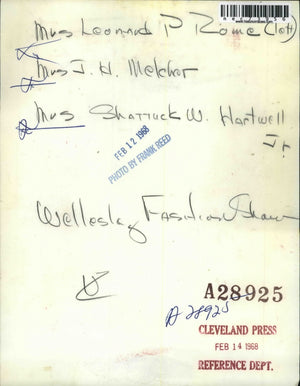 Mrs Leonard P Rome (left)
Mrs J. H. Melcher
Mrs Shattuck W. Hartwell
Jr.
FEB 12 1968
PHOTO BY FRANK REED
Wellesley Fashion Show
A28925
A 28925
CLEVELAND PRESS
FEB 14 1968
REFERENCE DEPT.